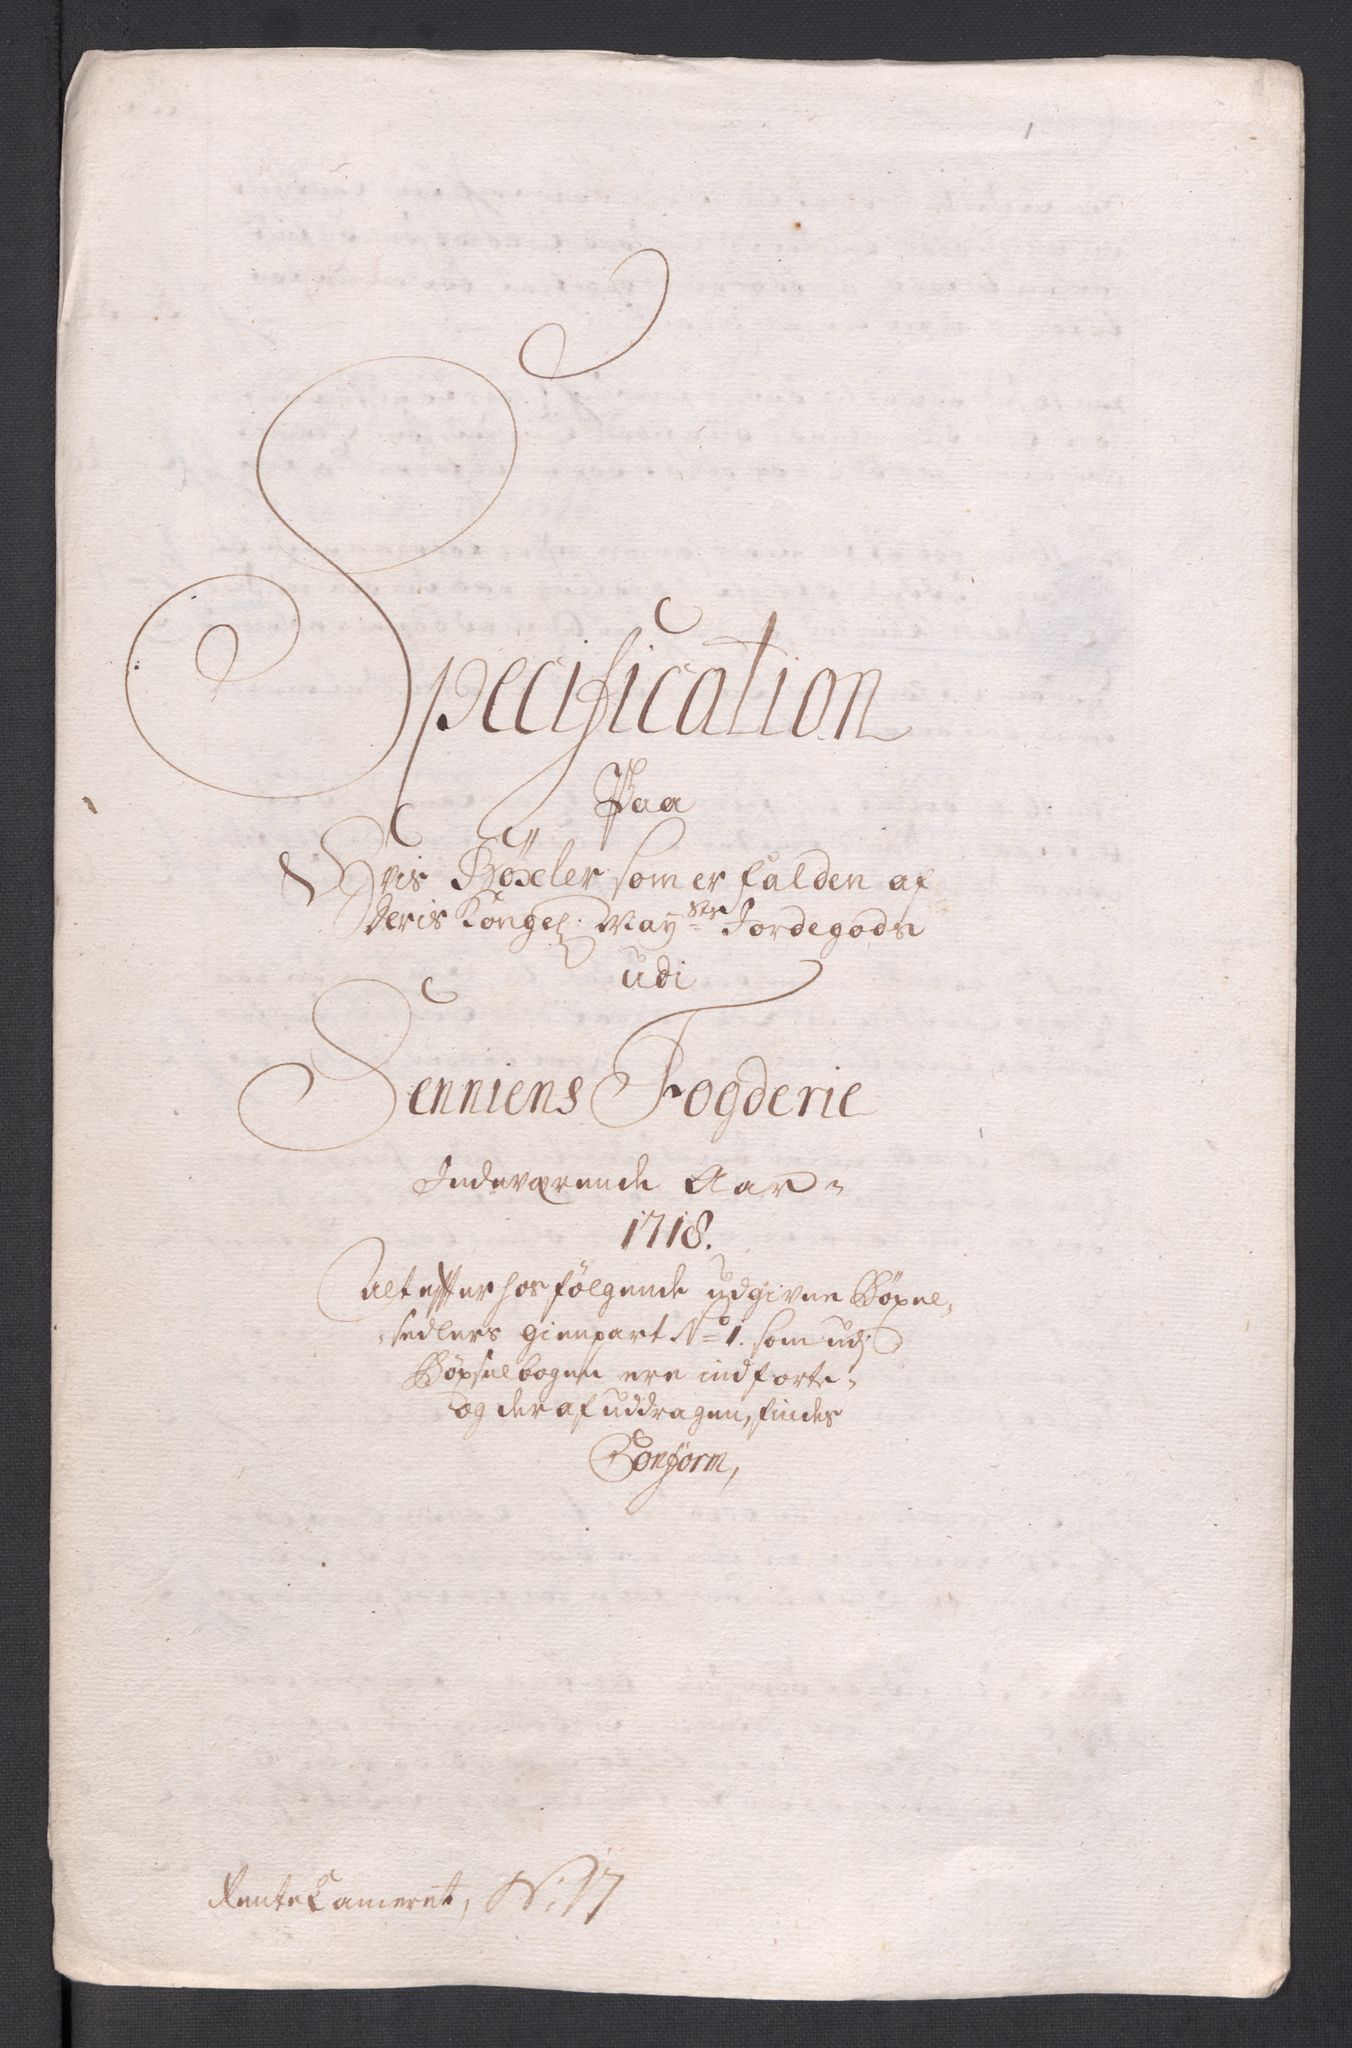 Specification
Paa
Hvis Böxler som er falden af
Deris Kongel. May:sts Jordegods
udi
Senniens Fogderie
Indeværende Aar
1718.
alt efter hos følgende udgivne Böxel-
sedlers gienpart No 1. som udj
Böxselbogen ere indførte
og der af uddragen, findes
Conform,
RenteCameret, N: 17